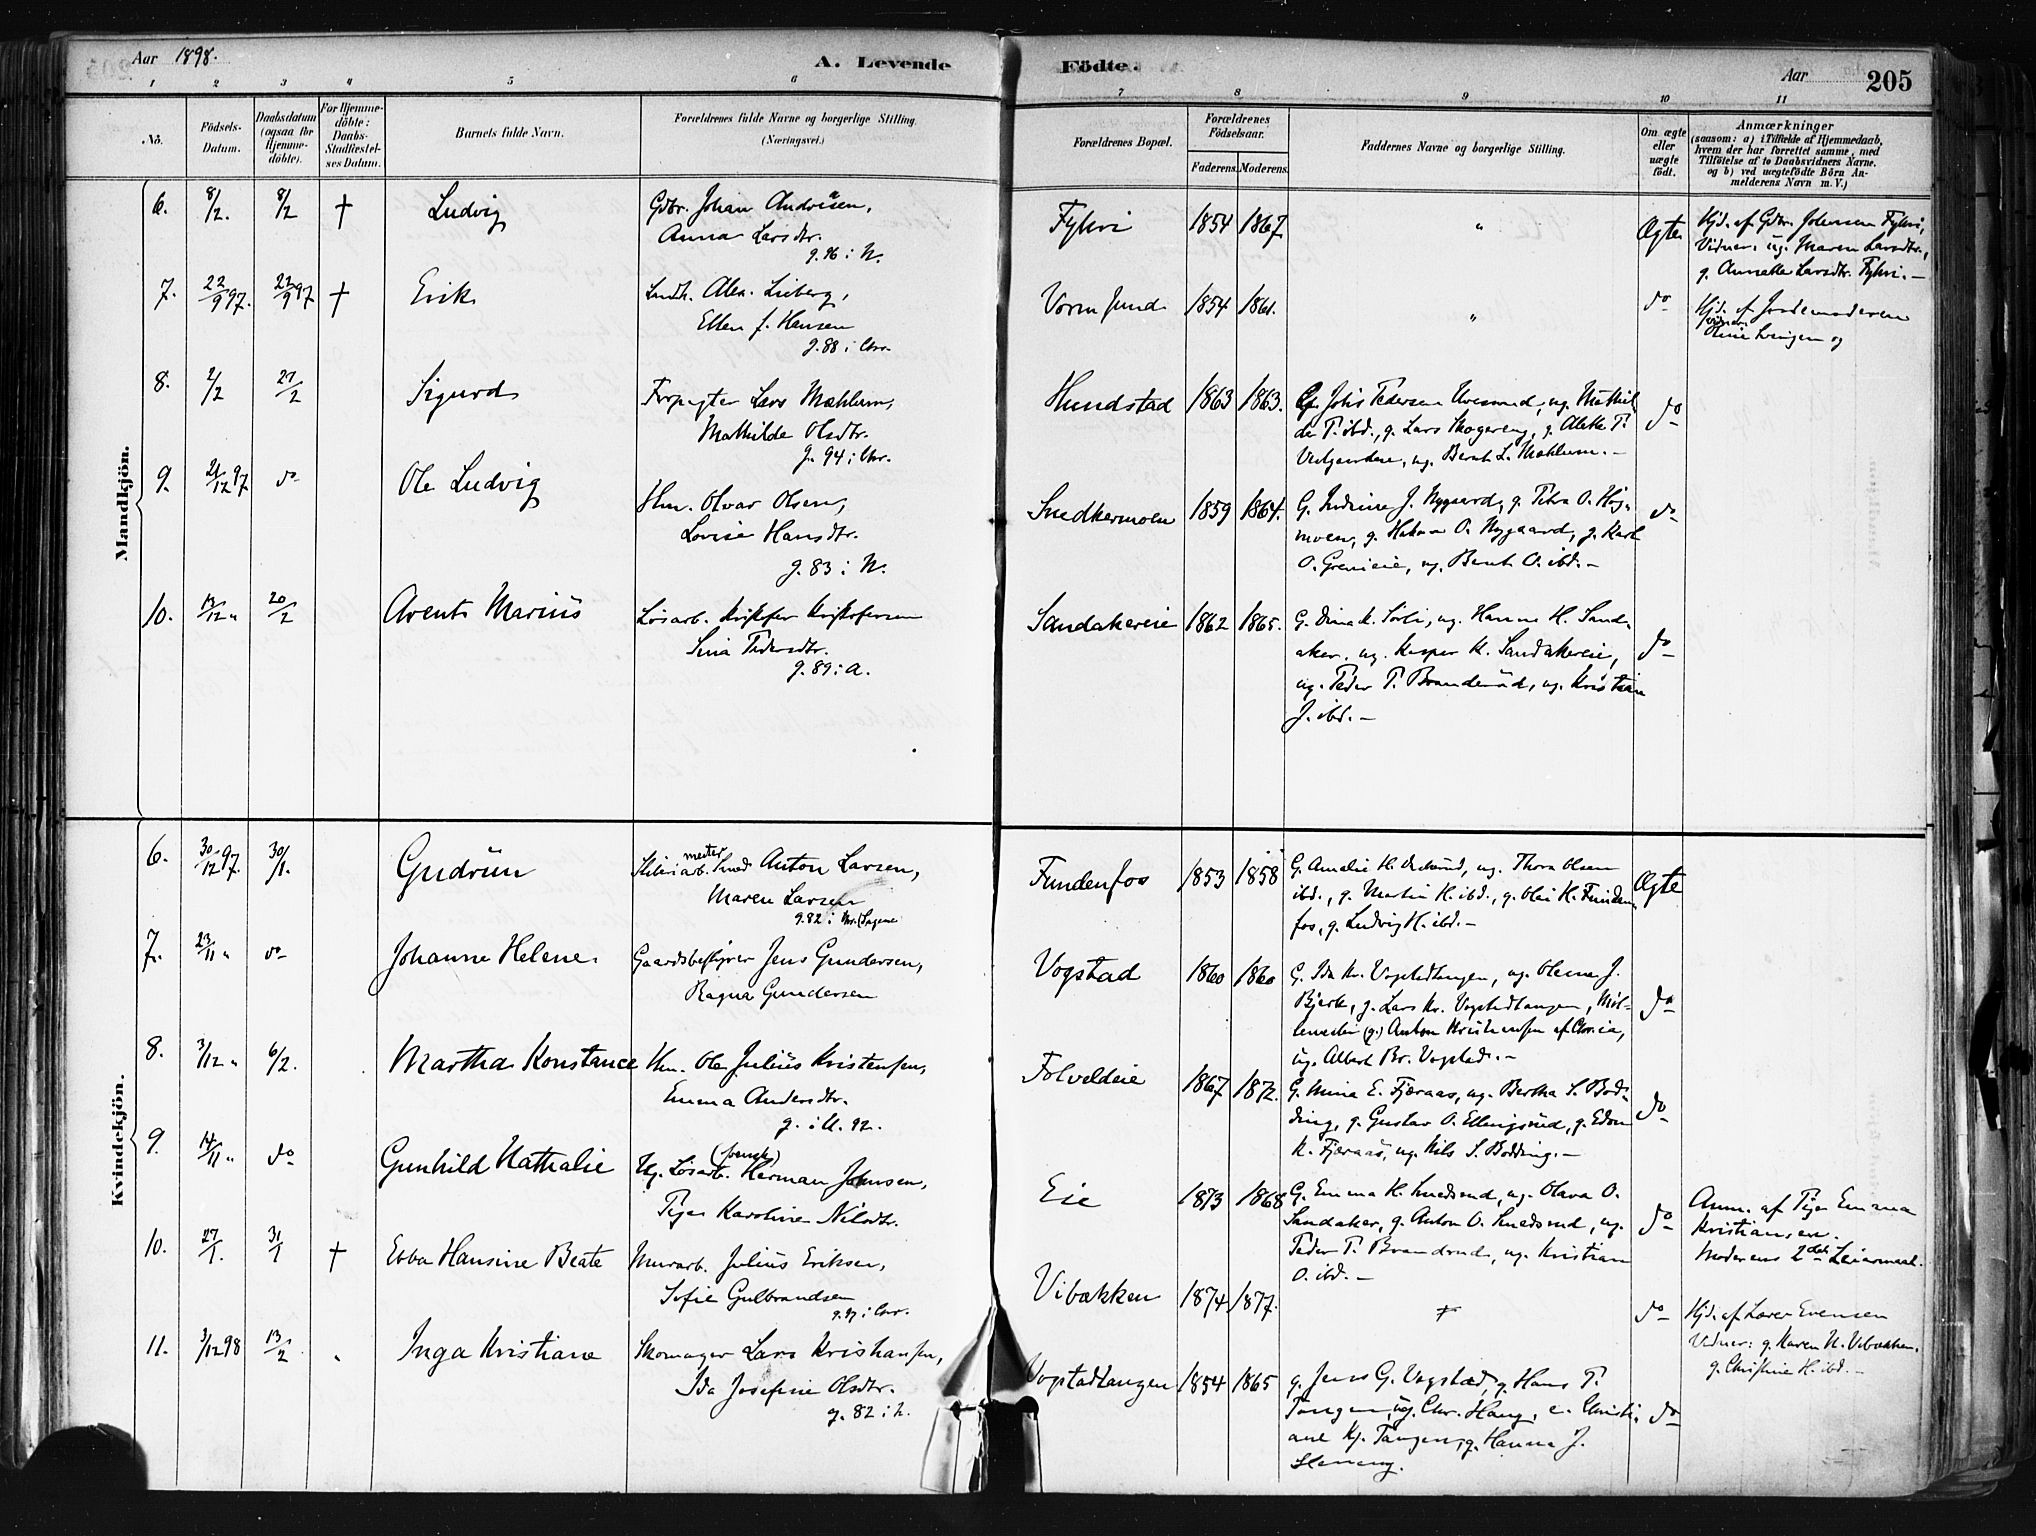 Aar 1898.
A. Levende Födte.
Aar
205
1 2 3 4 5 6 7 8 9 10 11
No.
Födsels-Datum.
Daabsdatum (ogsaa for Hjemme-döbte).
For Hjemme-döbte: Daabs-Stadfæstel-ses Datum.
Barnets fulde Navn.
Forældrenes fulde Navne og borgerlige Stilling.
(Næringsvei.)
Forældrenes Bopæl.
Forældrenes Födselsaar.
Faderens. Moderens.
Faddernes Navne og borgerlige Stilling.
Om ægte eller uægte födt.
Anmærkninger
(saasom: a) i Tilfælde af Hjemmedaab, hvem der har forrettet samme, med Tilföielse af to Daabsvidners Navne. og b) ved uægtefödte Börn An-melderens Navn m. V.)
Mandkjön.
6. 8/2. 8/2 † Ludvig
Gdbr. Johan Andrésen,
Anna Larsdtr.
g. 96 i N.
Fykri 1854 1867. " Ægte
Hjd. af Gdbr. Johansen Fykri,
Vidner: ug. Maren Larsdtr.,
g. Annette Larsdtr. Fykri. —
7. 22/9 97. 22/9 97 † Erik
Landh. Alex. Lieberg,
Ellen f. Hansen
g. 88 i Chr.
Vormsund 1854 1861. " do
Hjd. af Jordemoderen
Vidner:
8. 2/2 27/2 Sigurd
Forpagter Lars Mæhlum,
Mathilde Olsdtr.
g. 94 i Chr.
Hundstad 1863 1863.
g. Johs Pedersen ug. Mathil-
de P. ibd., g. Lars Skogereng, g. Alette P.
ug. Bernt L. Mæhlum. — do
9. 21/12 97 do Ole Ludvig
Hm. Olvar Olsen,
Lovise Hansdtr.
g. 83 i N.
Snedkermoen 1859 1864.
G. J. Nygaard, g. Petra O. Høg-
moen, g. O. Nygaard, g. Karl
O. Grenieie, ug. Bernt O. ibd. — do
10. 13/12 " 20/2 Arent Marius
Løsarb. Kristofer Kristofersen
Sina Pedersdtr.
g. 89 i A.
Sandakereie 1862 1865.
G. Dina K. Sørli, ug. Hanna H. Sand-
aker, ug. Kasper K. Sandakereie,
ug. Peder P. Branderud, ug. Kristian
J. ibd. — do
Kvindekjön.
6. 30/12 97. 30/1. Gudrun
Sliberiarb. Smed mester Anton Larsen,
Maren Larsen
g. 82 i Chr. (Sagene
Fundenfos 1853 1858
G. Amalie H. ug. Thora Olsen
ibd., g. Martin H. ibd., g. Olai H. Funden-
fos, g. Ludvig H. ibd. — Ægte
7. 23/11 " do Johanne Helene.
Gaardsbestyrer Jens Gundersen,
Ragna Gundersen
Vogstad 1860 1860
G. Ida Kr. Vogstadtangen, ug. Olena J.
Bjerke, g. Lars Kr. Vogstadtangen,
(g.) Anton Kristiansen af Chr.ia,
ug. Albert Br. Vogstad. — do
8. 3/12 " 6/2. Martha Konstance
Hm. Ole Julius Kristensen,
Emma Andersdtr.
g. i U. 92.
Folveldeie 1867 1872.
G. Mina E. Fjæraas, ug. Bertha S. Bod-
ding, g. Gustav O. Ellingsrud, g. Edon
K. Fjæraas, ug. Nils S. Bodding. — do
9. 14/11 " do Gunhild Nathalie
Ug. Løsarb. (svensk) Herman Johnsen,
Pige Karoline Nilsdtr.
Eie 1873 1868
G. Emma H. Smedsrud, ug. Olava O.
Sandaker, g. Anton O. Smedsrud, ug.
Peder P. Brandrud, ug. Kristian
O. ibd. — do
Anm. af Pige Emma
Kristiansen.
Moderens 2det Leiermaal.
10. 27/1. 31/1 † Ebba Hansine Beate
Murarb. Julius Eriksen,
Sofie Gulbrandsen
g. 97 i Chr.
Vibakken 1874 1877. do
Hjd. af Lærer Evensen
Vidner: g. Karen N. Vibakken,
g. Christine H. ibd. —
11. 3/12 98 13/2 Inga Kristiane
Skomager Lars Kristiansen,
Ida Josefine Olsdtr.
g. 82 i N.
Vogstadtangen 1854 1865
g. Jens G. Vogstad, g. Hans P.
Tangen, ug. Chr. Haug, e. Christi-
ane Kj. Tangen, g. Hanna J.
Steneng. do